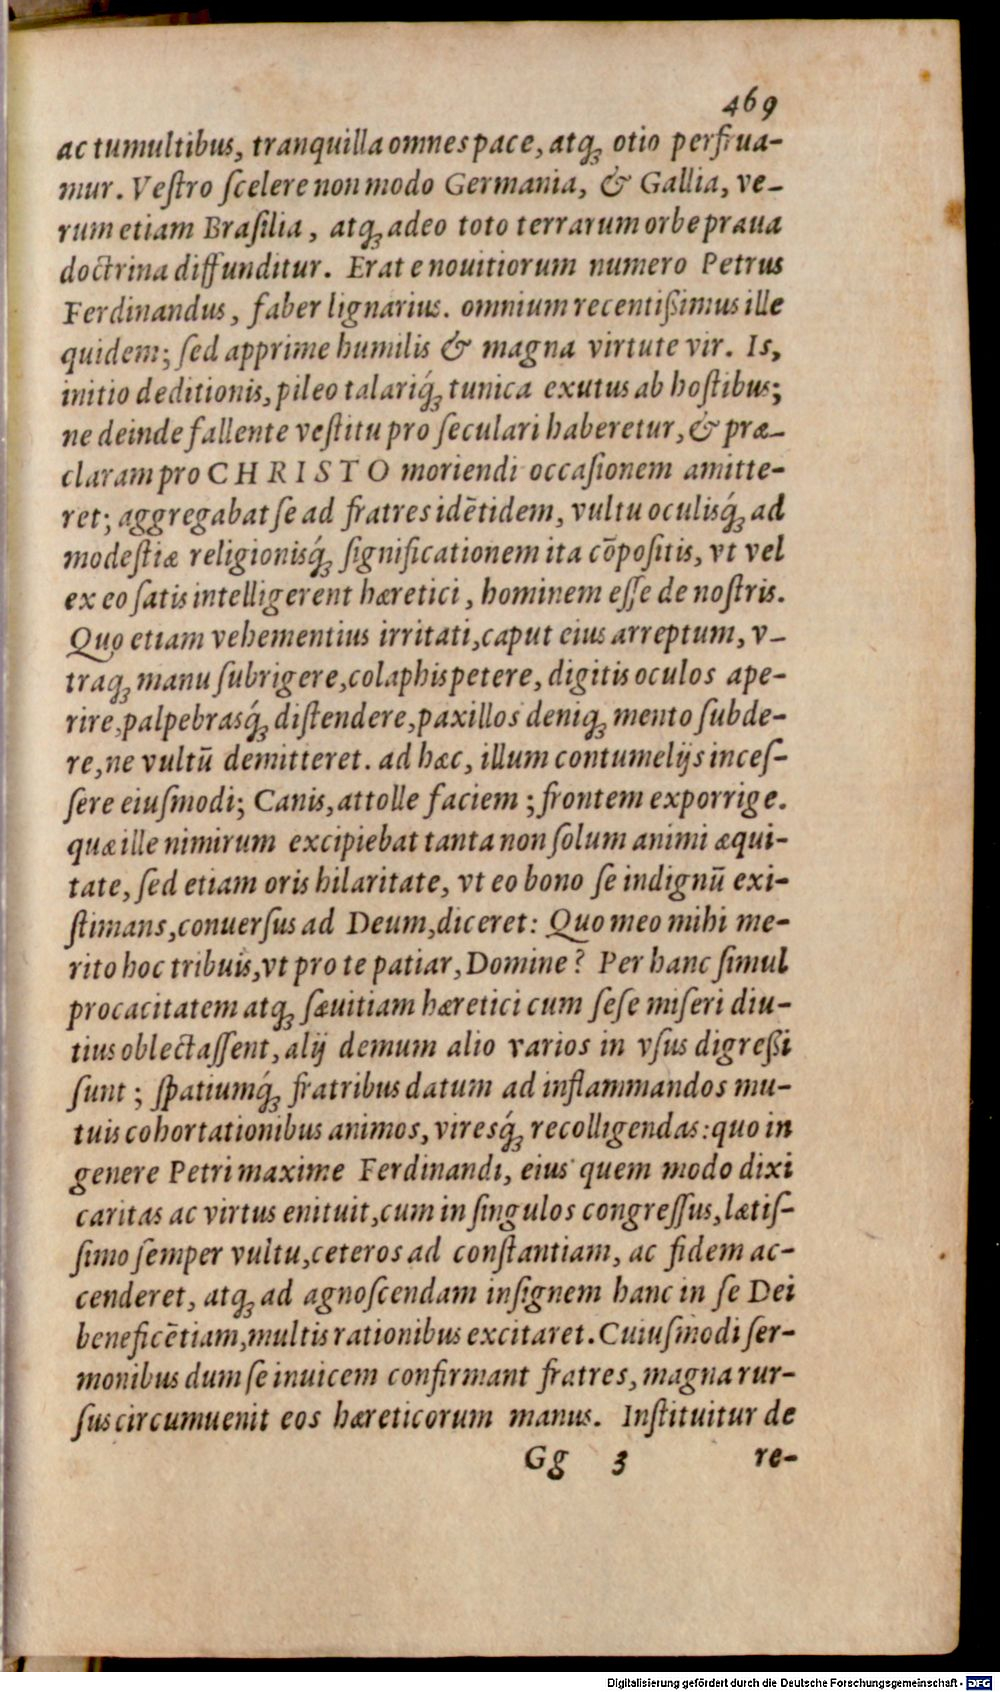 469
ac tumultibus, tranquilla omnes pace, atq́ꝫ otio perfrua-
mur. Veſtro ſcelere non modo Germania, & Gallia, ve-
rum etiam Braſilia, atqꝫ adeo toto terrarum orbe praua
doctrina diffunditur. Erat e nouitiorum numero Petrus
Ferdinandus, faber lignarius. omnium recentißimus ille
quidem; ſed apprime humilis & magna virtute vir. Is,
initio deditionis, pileo talariq́ꝫ tunica exutus ab hoſtibus;
ne deinde fallente veſtitu pro ſeculari haberetur, & præ-
claram pro CHRISTO moriendi occaſionem amitte-
ret; aggregabat ſe ad fratres idētidem, vultu oculisq́ꝫ ad
modeſtiæ religionisq́ꝫ ſignificationem ita cōpoſitis, vt vel
ex eo ſatis intelligerent hæretici, hominem eſſe de noſtris.
Quo etiam vehementius irritati, caput eius arreptum, v-
traqꝫ manu ſubrigere, colaphis petere, digitis oculos ape-
rire, palpebrasq́ꝫ diſtendere, paxillos deniqꝫ mento ſubde-
re, ne vultū demitteret. ad hæc, illum contumelijs inceſ-
ſere eiuſmodi; Canis, attolle faciem; frontem exporrige.
quæ ille nimirum excipiebat tanta non ſolum animi æqui-
tate, ſed etiam oris hilaritate, vt eo bono ſe indignū exi-
ſtimans, conuerſus ad Deum, diceret: Quo meo mihi me-
rito hoc tribuis, vt pro te patiar, Domine? Per hanc ſimul
procacitatem atqꝫ ſæuitiam hæretici cum ſeſe miſeri diu-
tius oblectaſſent, alij demum alio varios in vſus digreßi
ſunt; ſpatiumq́ꝫ fratribus datum ad inflammandos mu-
tuis cohortationibus animos, viresq́ꝫ recolligendas: quo in
genere Petri maxime Ferdinandi, eius quem modo dixi
caritas ac virtus enituit, cum in ſingulos congreſſus, lætiſ-
ſimo ſemper vultu, ceteros ad conſtantiam, ac fidem ac-
cenderet, atqꝫ ad agnoſcendam inſignem hanc in ſe Dei
beneficētiam, multis rationibus excitaret. Cuiuſmodi ſer-
monibus dum ſe inuicem confirmant fratres, magna rur-
ſus circumuenit eos hæreticorum manus. Inſtituitur de
Gg 3 re-
Digitalisierung gefördert durch die Deutsche Forschungsgemeinschaft - DFG